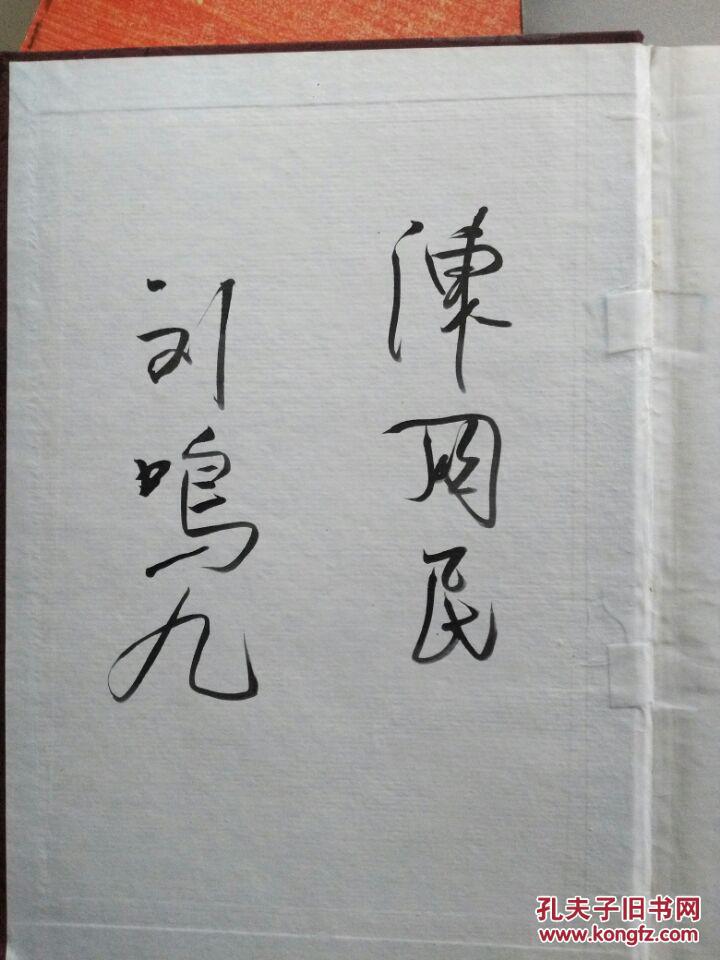 陳国民
刘鳴九
孔夫子旧书网
www.kongfz.com